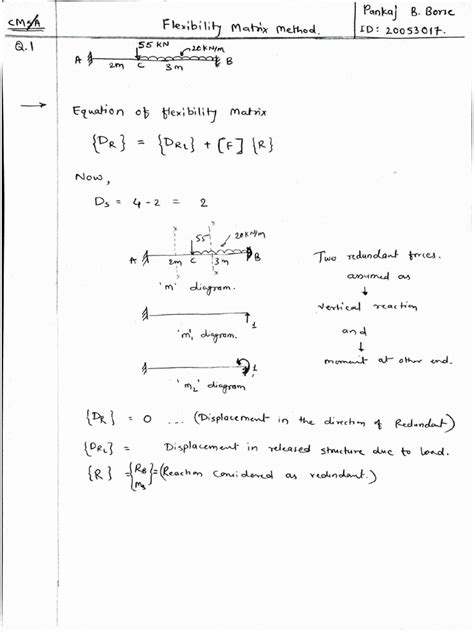 CMSA
Flexibility Matrix Method.
Pankaj B. Borse
ID: 20053017.
Q.1
55 KN
20KN/m
A
B
2m C 3m
Equation of flexibility Matrix
{DR} = {DRL} + [F] {R}
Now,
Ds = 4-2 = 2
55
20KN/m
A
B
2m C 3m
'm' diagram.
1
'm1' diagram.
1
'm2' diagram
Two redundant forces.
assumed as
vertical reaction
and
moment at other end.
{DR} = 0 ... (Displacement in the direction of Redundant)
{DRL} = Displacement in released structure due to load.
{R} = {RB MB} = (Reaction Considered as redundant.)